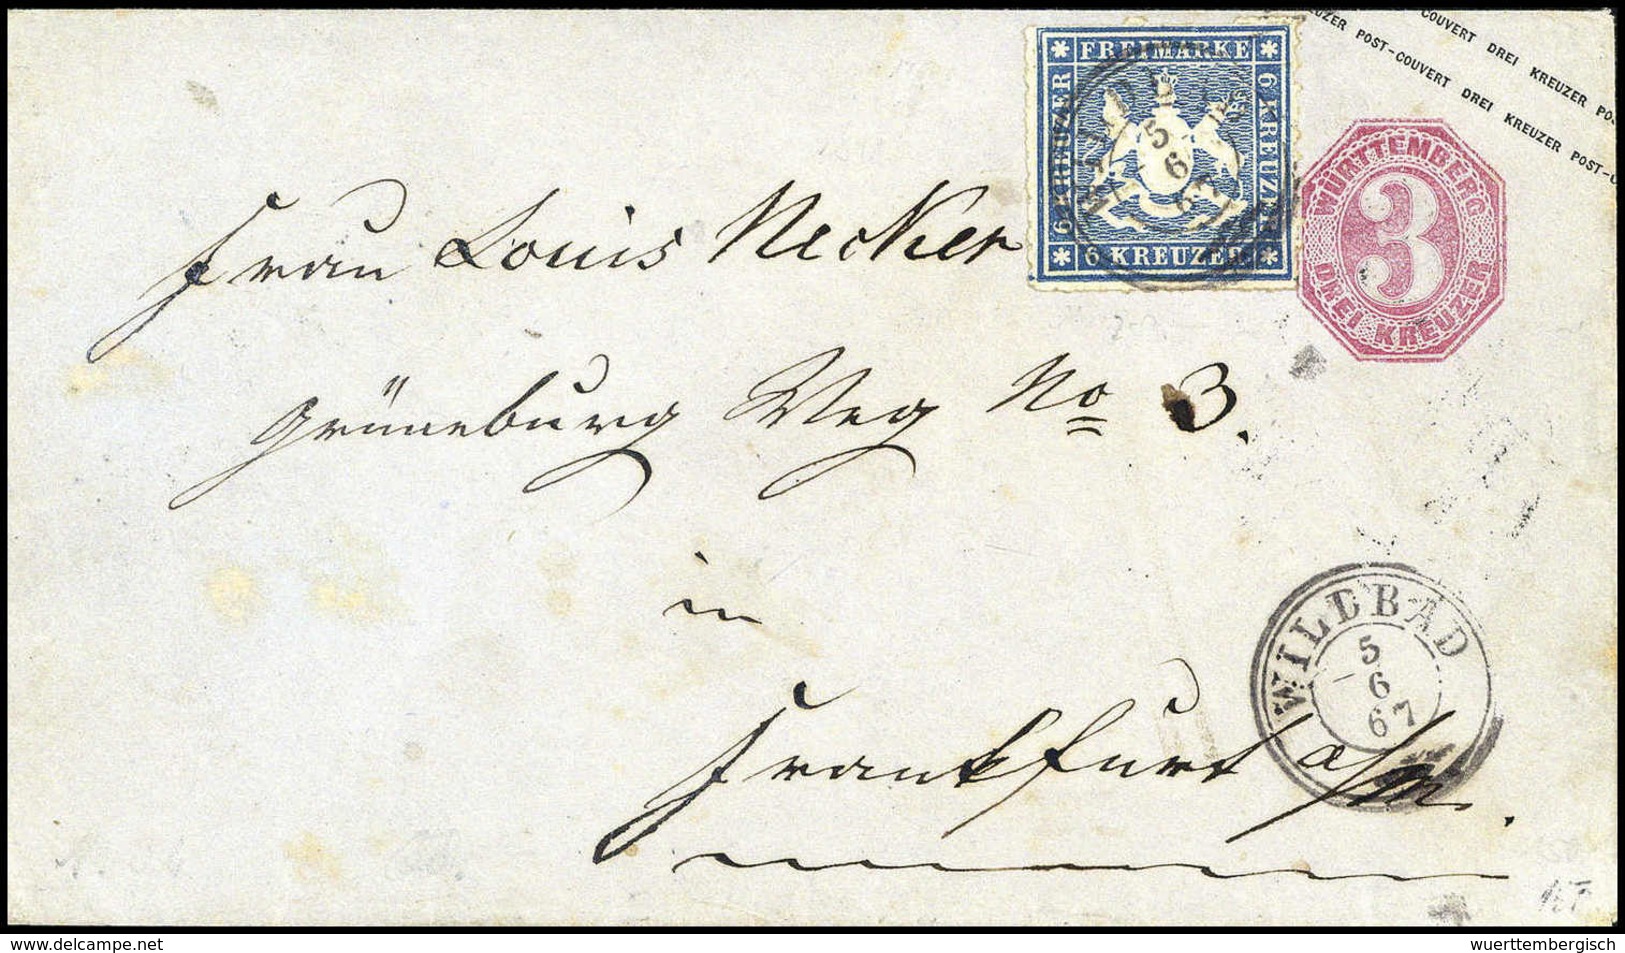 COUVERT DREI KREUZER PO
UZER POST-COUVERT DREI KREUZER POST-C
* FREIMARKE *
6 KREUZER
6 KREUZER
* 6 KREUZER *
5
6
67
WÜRTTEMBERG
3
DREI KREUZER
Frau Louis Necker
Grüneburg Weg No 3.
in
Frankfurt a/M.
WILDBAD
5
6
67
www.delcampe.net
wuerttembergisch